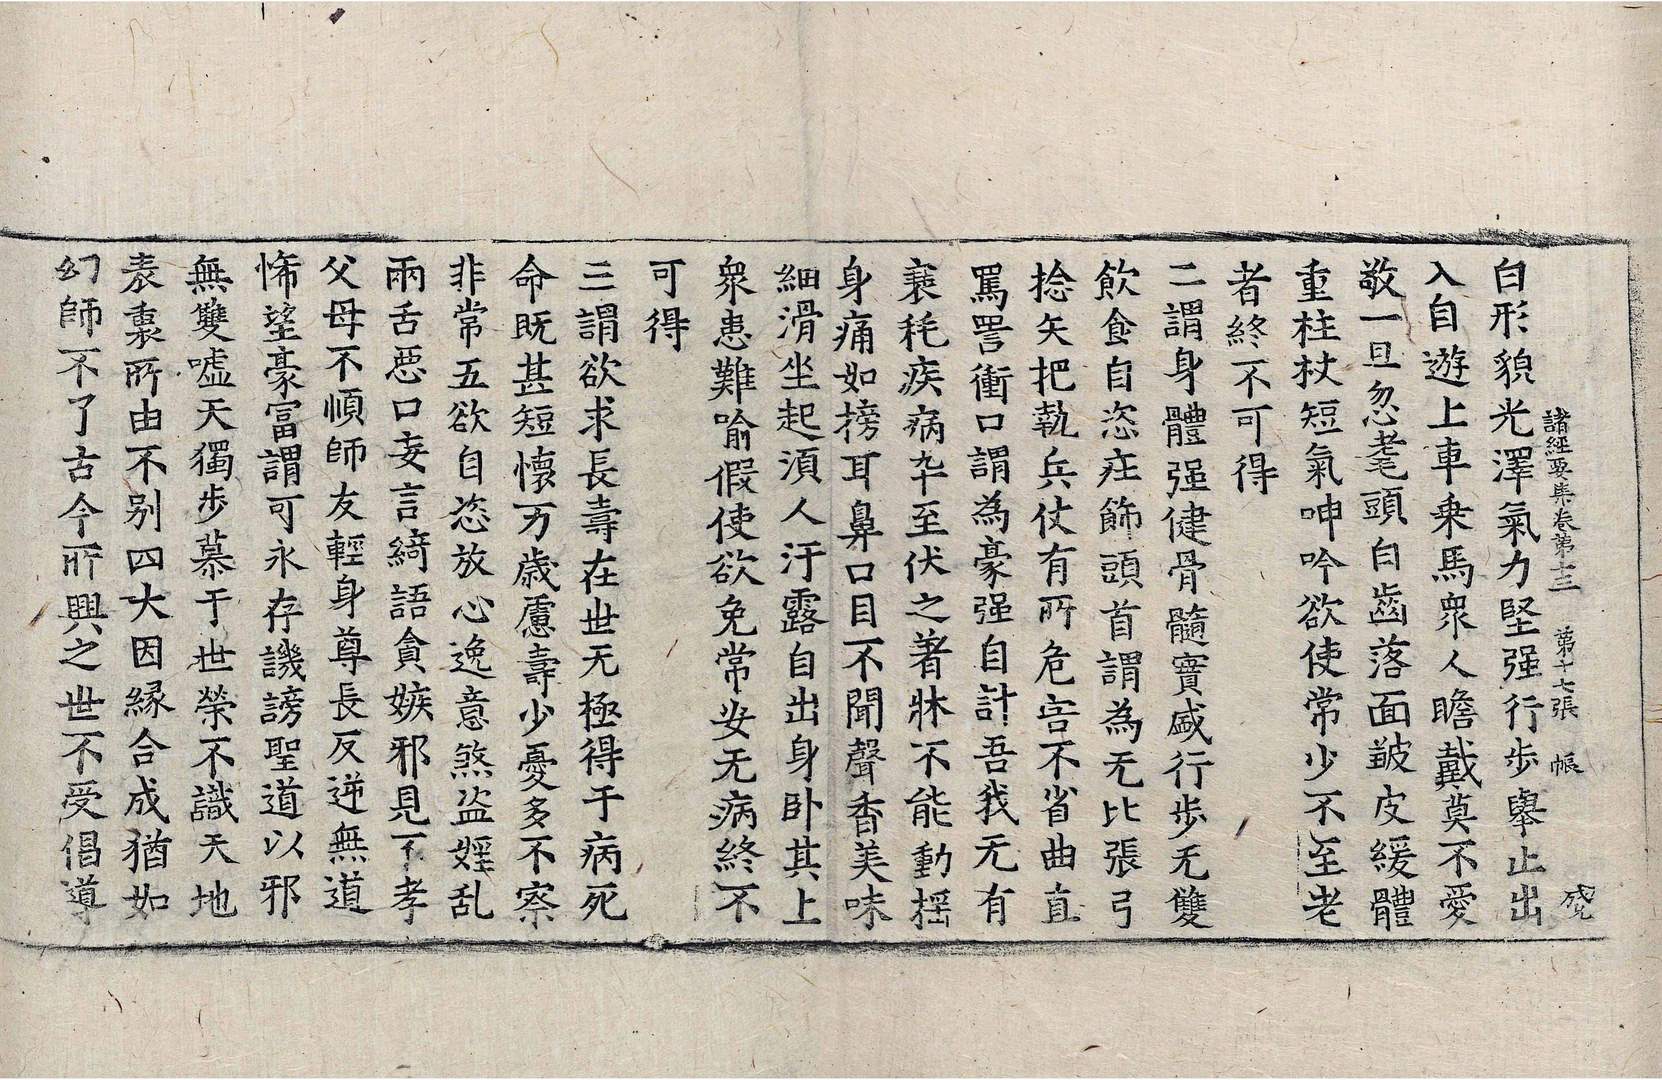 諸經要集卷第十三　第十七張　帳
白形貌光澤氣力堅强行步舉止出
入自遊上車乗馬衆人瞻戴莫不愛
敬一旦忽耄頭白齒落面皺皮緩體
重柱杖短氣呻吟欲使常少不至老
者終不可得
二謂身體强健骨髓實盛行步无雙
飲食自恣㽵飾頭首謂為无比張弓
捻矢把執兵仗有所危害不省曲直
罵詈衝口謂為豪强自計吾我无有
衰秏疾病卒至伏之著牀不能動揺
身痛如搒耳鼻口目不聞聲香美味
細滑坐起湏人汙露自出身卧其上
衆患難喻假使欲免常安无病終不
可得
三謂欲求長壽在世无極得于病死
命既甚短懷万歳慮壽少憂多不察
非常五欲自恣放心逸意煞盜婬乱
兩舌惡口妄言綺語貪嫉邪見不孝
父母不順師友輕身尊長反逆無道
悕望豪富謂可永存譏謗聖道以邪
無雙嘘天獨步慕于世榮不識天地
表裏所由不别四大因縁合成猶如
幻師不了古今所興之世不受倡導